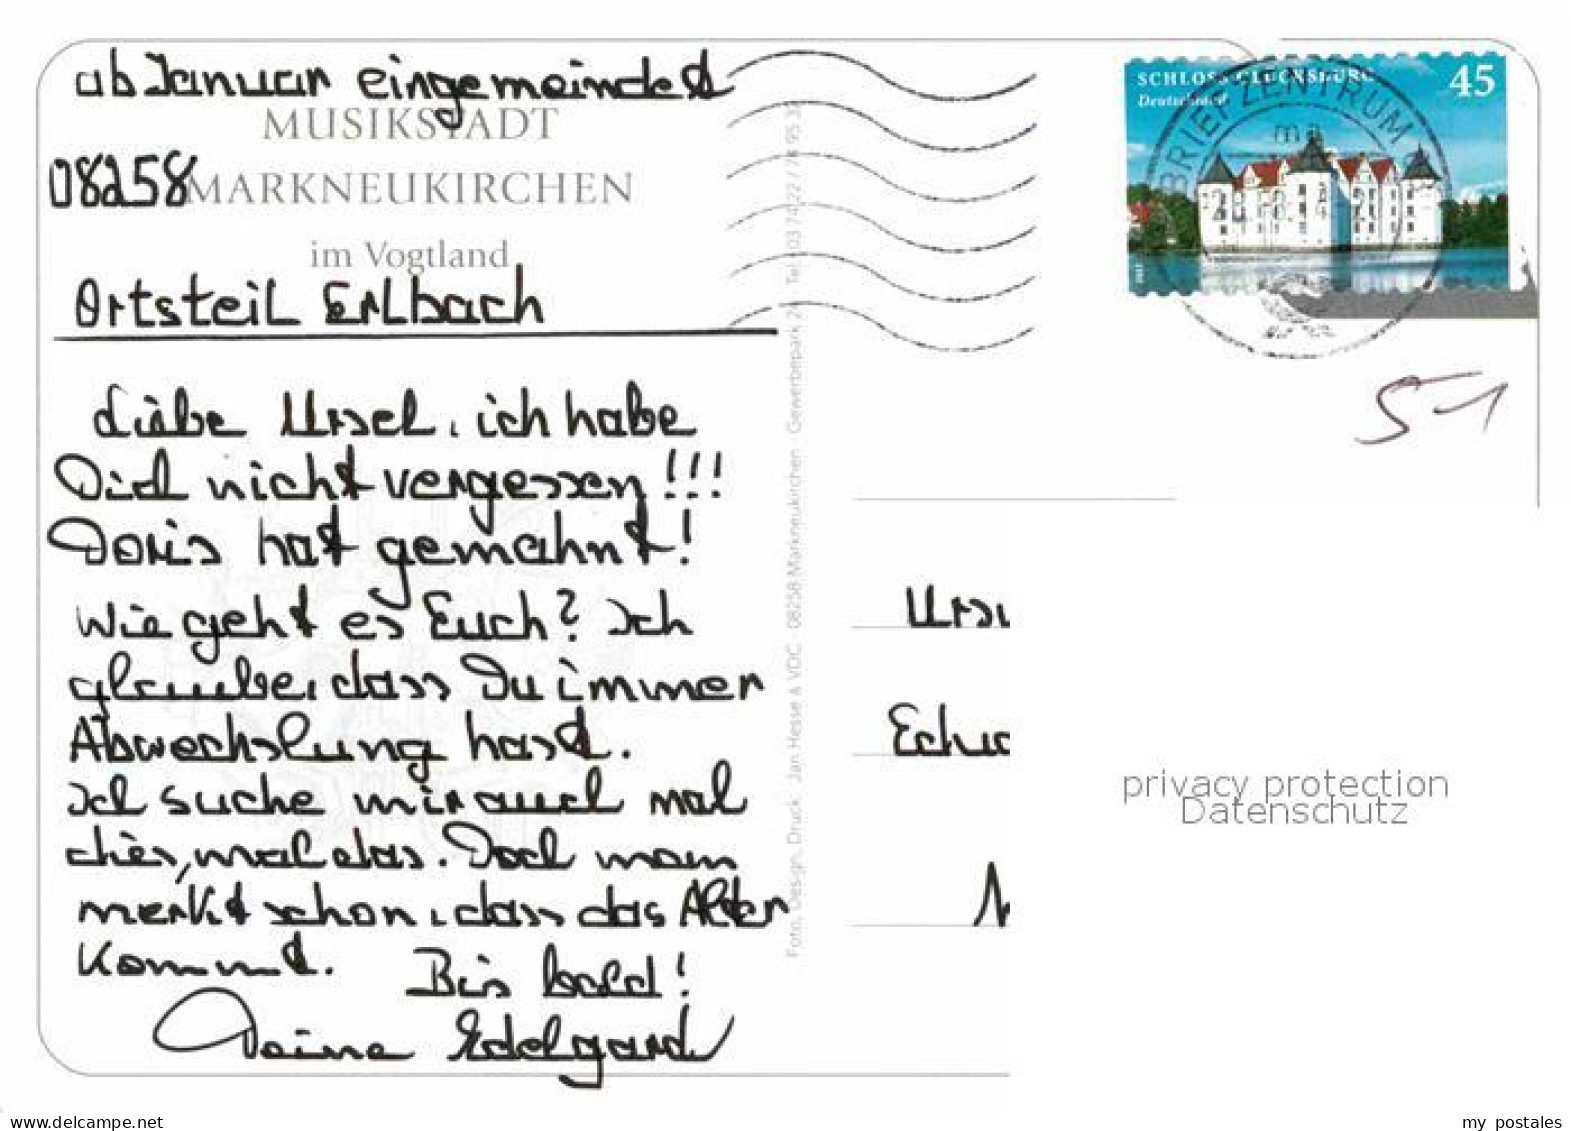 ab Januar eingemeindet
MUSIKSTADT
08258 MARKNEUKIRCHEN
im Vogtland
Ortsteil Erlbach
Liebe Ursel, ich habe
Dich nicht vergessen!!!
Doris hat gemahnt!
Wie geht es Euch? Ich
glaube, dass Du immer
Abwechslung hast.
Ich suche mir auch mal
dies, mal das. Doch man
merkt schon, dass das Alter
kommt. Bis bald!
Deine Edelgard
Foto, Design, Druck: Jan Hesse & VDC · 08258 Markneukirchen · Gewerbepark 24 · Tel. 03 74 22 / 74 95 32
SCHLOSS GLÜCKSBURG 45
Deutschland
BRIEFZENTRUM
51
privacy protection
Datenschutz
www.delcampe.net
my_postales